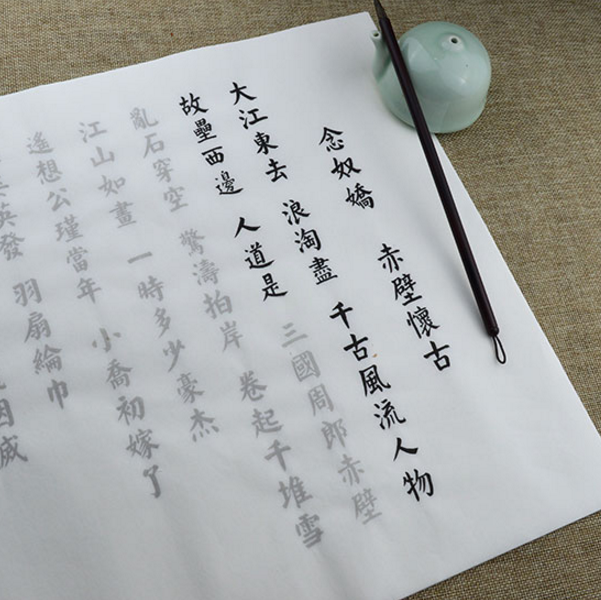 念奴嬌 赤壁懷古
大江東去 浪淘盡 千古風流人物
故壘西邊 人道是 三國周郎赤壁
亂石穿空 驚濤拍岸 卷起千堆雪
江山如畫 一時多少豪杰
遙想公瑾當年 小喬初嫁了
英發 羽扇綸巾